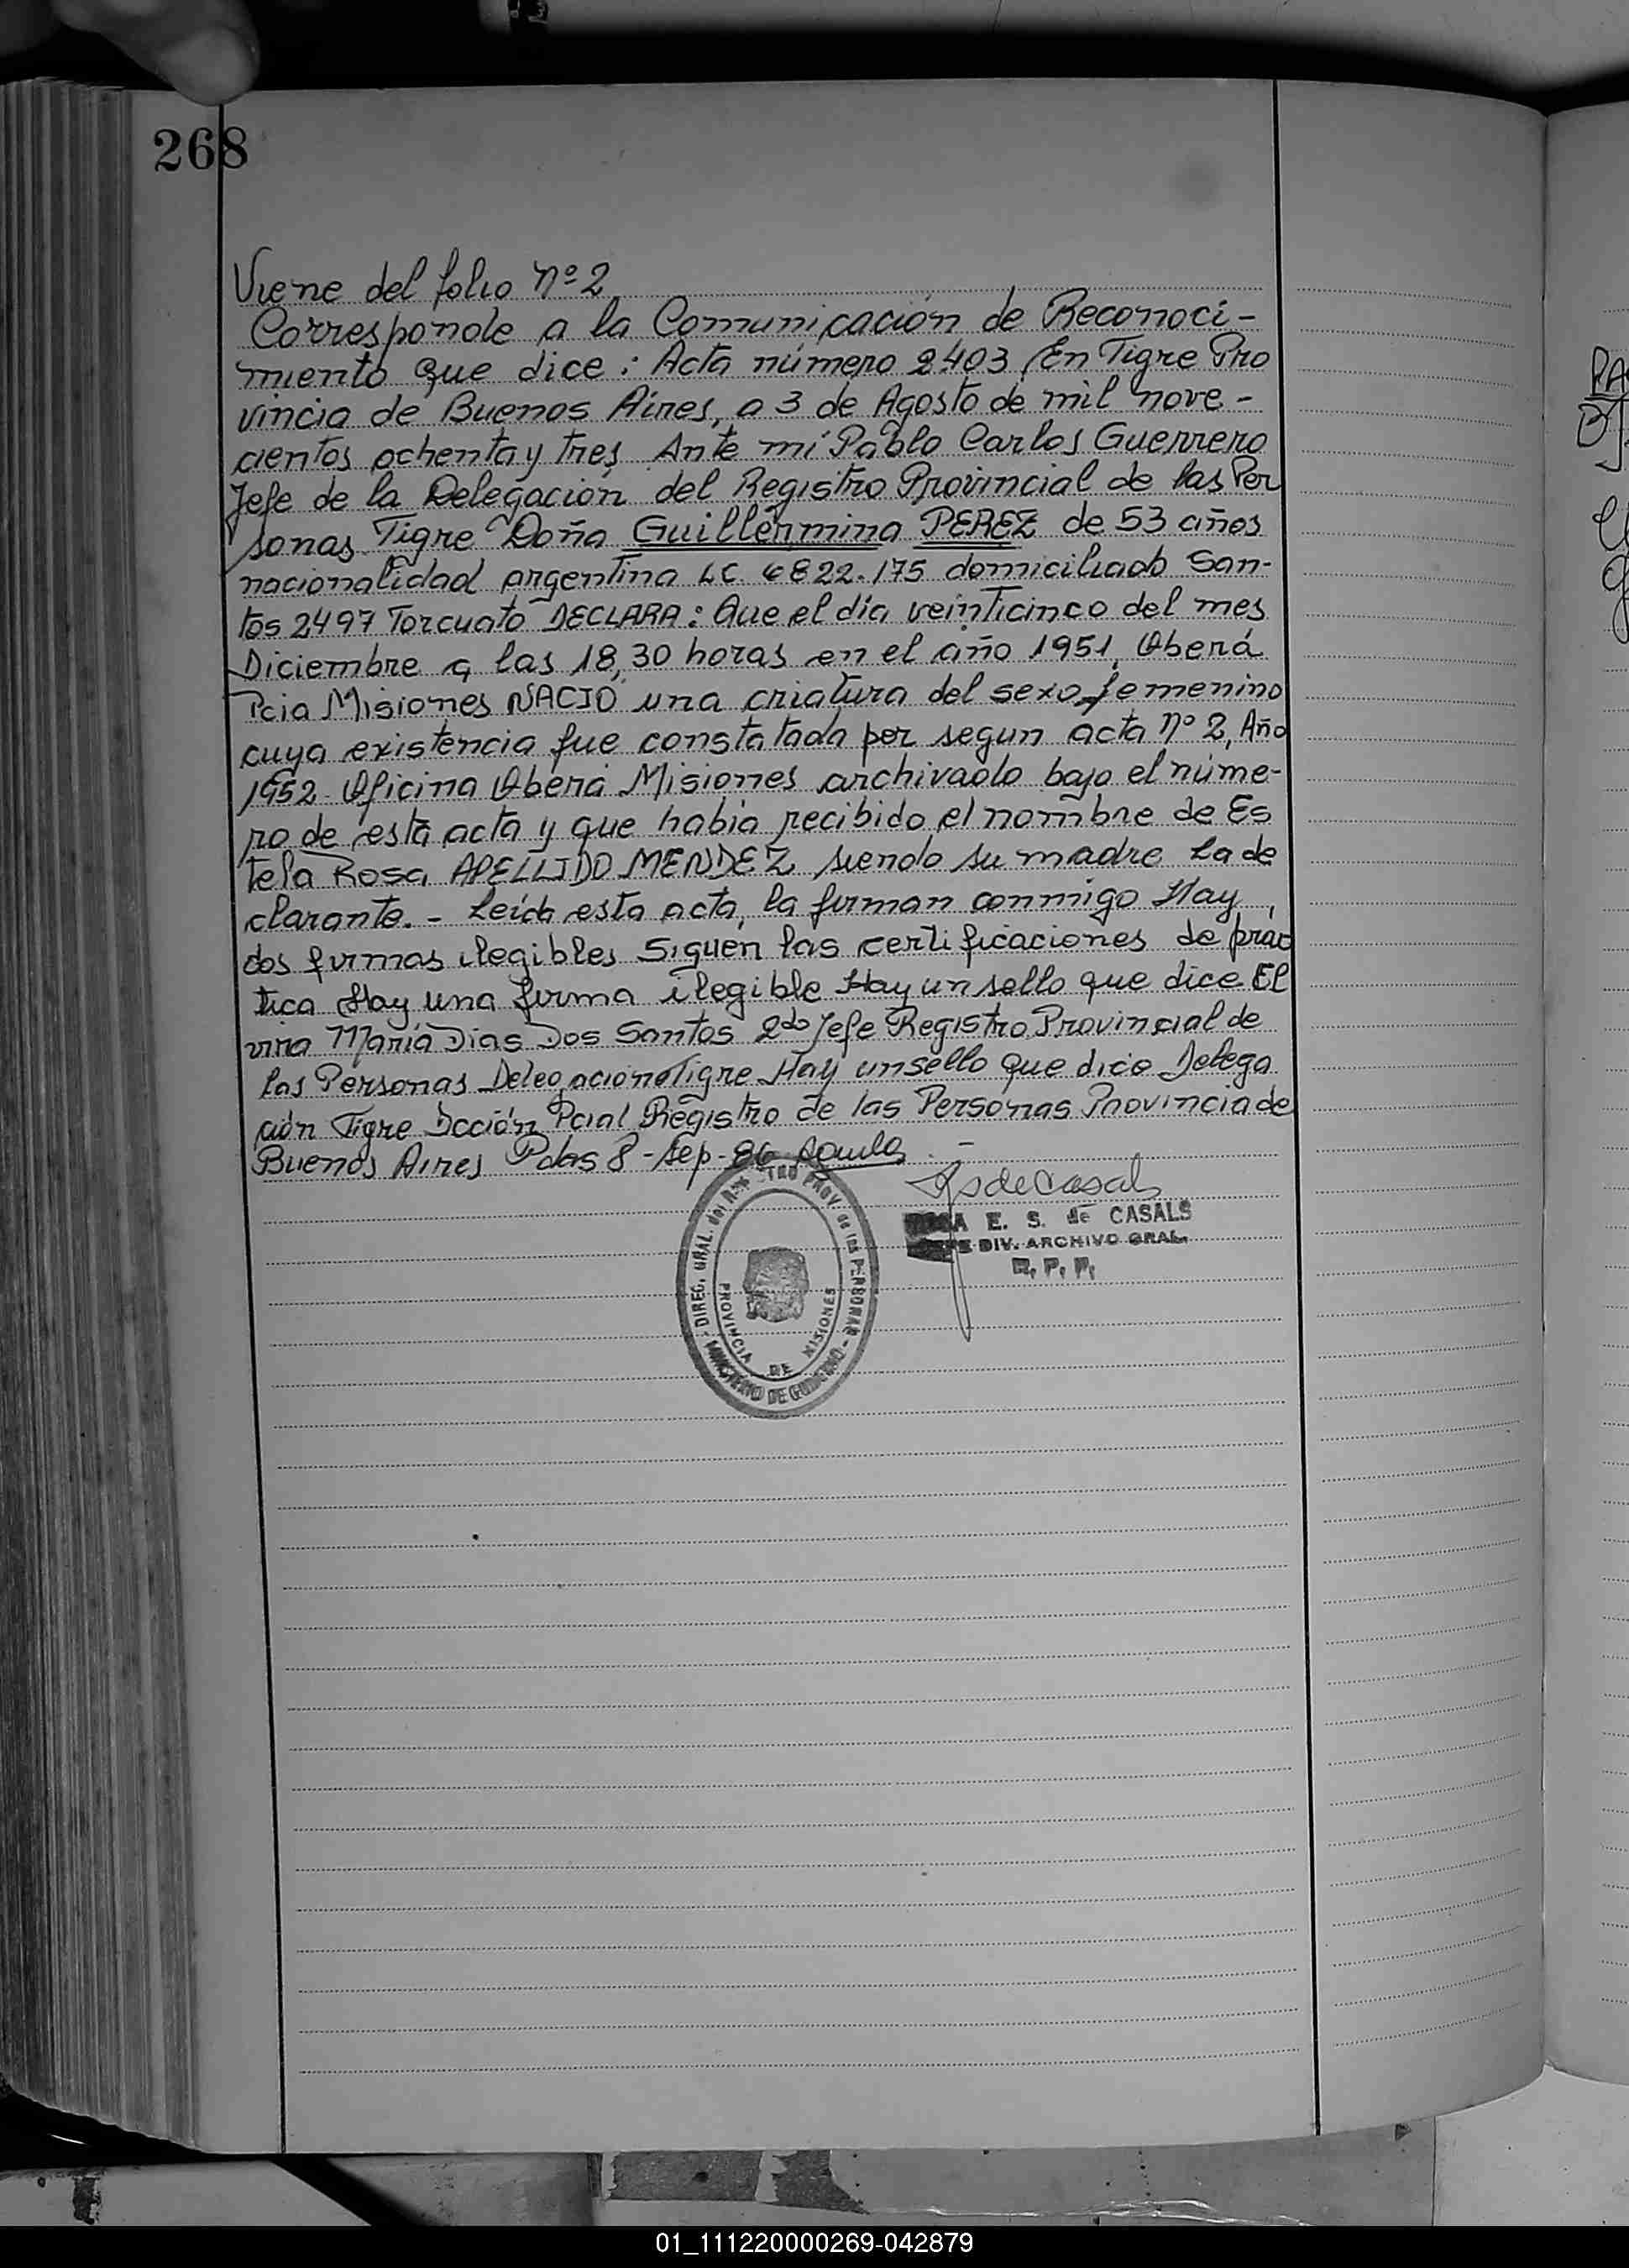 268
Viene del folio nº 2
Corresponde a la Comunicación de Reconoci-
miento que dice: Acta número 2403, En Tigre Pro
vincia de Buenos Aires, a 3 de Agosto de mil nove-
cientos ochenta y tres Ante mí Pablo Carlos Guerrero
Jefe de la Delegación del Registro Provincial de las Per
sonas Tigre Doña Guillermina PEREZ de 53 años
nacionalidad argentina LC 6822.175 domiciliado San-
tos 2497 Torcuato DECLARA: Que el día veinticinco del mes
Diciembre a las 18,30 horas en el año 1951, Oberá
Pcia Misiones NACIO una criatura del sexo femenino
cuya existencia fue constatada por segun acta nº 2, Año
1952. Oficina Oberá Misiones archivado bajo el núme-
ro de esta acta y que habia recibido el nombre de Es
tela Rosa APELLIDO MENDEZ siendo su madre La de
clarante. - Leída esta acta, la firman conmigo Hay
dos firmas ilegibles Siguen las certificaciones de prác
tica Hay una firma ilegible Hay un sello que dice El
vira María Dias Dos Santos 2do Jefe Registro Provincial de
las Personas Delegación Tigre Hay un sello que dice Delega
ción Tigre Dcción Pcial Registro de las Personas Provincia de
Buenos Aires Pdas 8 - Sep - 86
RsdeCasals
ROSA E. S. de CASALS
JEFE DIV. ARCHIVO GRAL.
R. P. P.
DIREC. GRAL. del REGISTRO PROV. de las PERSONAS
MINISTERIO DE GOBIERNO
PROVINCIA DE MISIONES
01_111220000269-042879